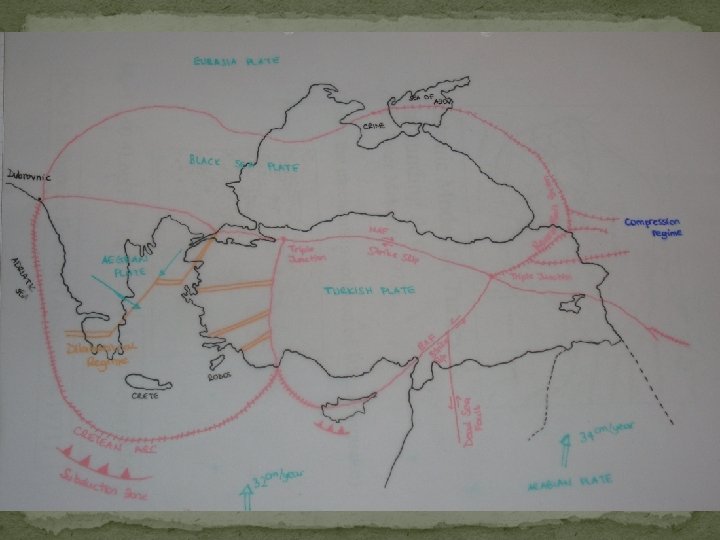 EURASIA PLATE
SEA OF
AZOV
CRIME
BLACK SEA PLATE
Dubrovnic
Compression
Regime
NAF
Strike Slip
Triple
Junction
Triple Junction
AEGEAN
PLATE
ADRIATIC
SEA
TURKISH PLATE
EAF
Strike
Slip
Dilatational
Regime
RODOS
CRETE
Dead Sea
Fault
CRETEAN ARC
Subduction Zone
32 cm/year
34 cm/year
ARABIAN PLATE